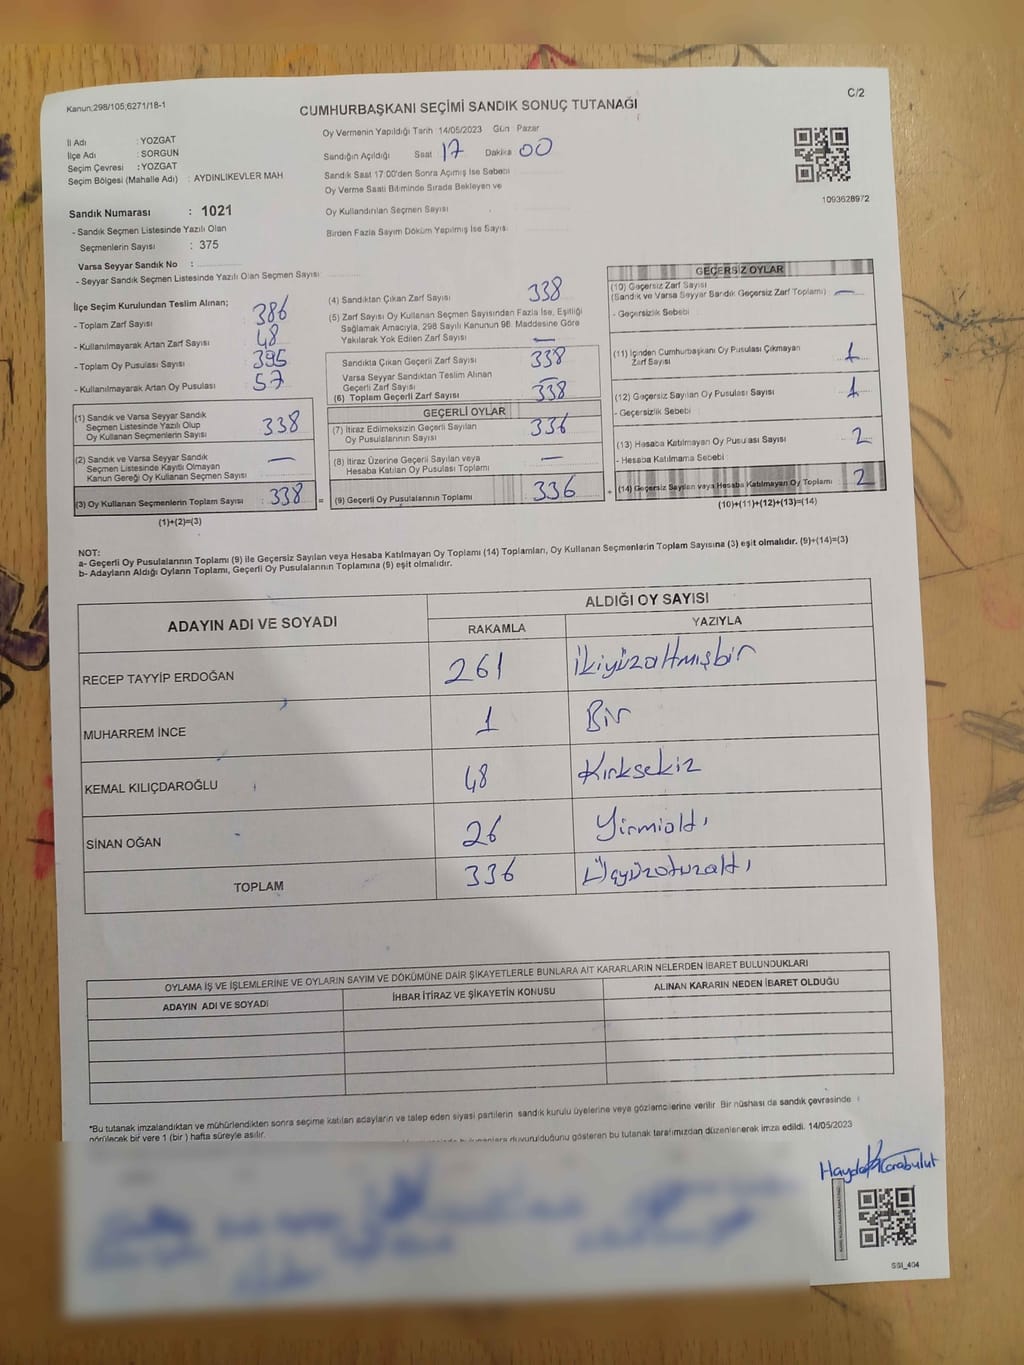 Kanun,298/105,6271/18-1
C/2
CUMHURBAŞKANI SEÇİMİ SANDIK SONUÇ TUTANAĞI
İl Adı : YOZGAT
İlçe Adı : SORGUN
Seçim Çevresi : YOZGAT
Seçim Bölgesi (Mahalle Adı) : AYDINLIKEVLER MAH
Oy Vermenin Yapıldığı Tarih 14/05/2023 Gün Pazar
Sandığın Açıldığı Saat 17 Dakika 00
Sandık Saat 17:00'den Sonra Açımış İse Sebebi
Oy Verme Saati Bitiminde Sırada Bekleyen ve
Oy Kullandırılan Seçmen Sayısı
Birden Fazla Sayım Döküm Yapılmış İse Sayısı
1093628972
Sandık Numarası : 1021
- Sandık Seçmen Listesinde Yazılı Olan
Seçmenlerin Sayısı : 375
Varsa Seyyar Sandık No :
- Seyyar Sandık Seçmen Listesinde Yazılı Olan Seçmen Sayısı
İlçe Seçim Kurulundan Teslim Alınan;
- Toplam Zarf Sayısı 386
- Kullanılmayarak Artan Zarf Sayısı 48
- Toplam Oy Pusulası Sayısı 395
- Kullanılmayarak Artan Oy Pusulası 57
(1) Sandık ve Varsa Seyyar Sandık
Seçmen Listesinde Yazılı Olup
Oy Kullanan Seçmenlerin Sayısı 338
(2) Sandık ve Varsa Seyyar Sandık
Seçmen Listesinde Kayıtlı Olmayan
Kanun Gereği Oy Kullanan Seçmen Sayısı —
(3) Oy Kullanan Seçmenlerin Toplam Sayısı : 338 =
(1)+(2)=(3)
(4) Sandıktan Çıkan Zarf Sayısı 338
(5) Zarf Sayısı Oy Kullanan Seçmen Sayısından Fazla İse, Eşitliği
Sağlamak Amacıyla, 298 Sayılı Kanunun 98. Maddesine Göre
Yakılarak Yok Edilen Zarf Sayısı —
Sandıkta Çıkan Geçerli Zarf Sayısı 338
Varsa Seyyar Sandıktan Teslim Alınan
Geçerli Zarf Sayısı —
(6) Toplam Geçerli Zarf Sayısı 338
GEÇERLİ OYLAR
(7) İtiraz Edilmeksizin Geçerli Sayılan
Oy Pusulalarının Sayısı 336
(8) İtiraz Üzerine Geçerli Sayılan veya
Hesaba Katılan Oy Pusulası Toplamı —
(9) Geçerli Oy Pusulalarının Toplamı 336 +
GEÇERSİZ OYLAR
(10) Geçersiz Zarf Sayısı
(Sandık ve Varsa Seyyar Sandık Geçersiz Zarf Toplamı) —
- Geçersizlik Sebebi
(11) İçinden Cumhurbaşkanı Oy Pusulası Çıkmayan
Zarf Sayısı 1
(12) Geçersiz Sayılan Oy Pusulası Sayısı 1
- Geçersizlik Sebebi
(13) Hesaba Katılmayan Oy Pusulası Sayısı 2
- Hesaba Katılmama Sebebi
(14) Geçersiz Sayılan veya Hesaba Katılmayan Oy Toplamı 2
(10)+(11)+(12)+(13)=(14)
NOT:
a- Geçerli Oy Pusulalarının Toplamı (9) ile Geçersiz Sayılan veya Hesaba Katılmayan Oy Toplamı (14) Toplamları, Oy Kullanan Seçmenlerin Toplam Sayısına (3) eşit olmalıdır. (9)+(14)=(3)
b- Adayların Aldığı Oyların Toplamı, Geçerli Oy Pusulalarının Toplamına (9) eşit olmalıdır.
ADAYIN ADI VE SOYADI
ALDIĞI OY SAYISI
RAKAMLA YAZIYLA
RECEP TAYYİP ERDOĞAN 261 ikiyüzaltmışbir
MUHARREM İNCE 1 Bir
KEMAL KILIÇDAROĞLU 48 Kırksekiz
SİNAN OĞAN 26 Yirmialtı
TOPLAM 336 Üçyüzotuzaltı
OYLAMA İŞ VE İŞLEMLERİNE VE OYLARIN SAYIM VE DÖKÜMÜNE DAİR ŞİKAYETLERLE BUNLARA AİT KARARLARIN NELERDEN İBARET BULUNDUKLARI
ADAYIN ADI VE SOYADI İHBAR İTİRAZ VE ŞİKAYETİN KONUSU ALINAN KARARIN NEDEN İBARET OLDUĞU
*Bu tutanak imzalandıktan ve mühürlendikten sonra seçime katılan adayların ve talep eden siyasi partilerin sandık kurulu üyelerine veya gözlemcilerine verilir Bir nüshası da sandık çevresinde
görülecek bir yere 1 (bir) hafta süreyle asılır.
duyurulduğunu gösteren bu tutanak tarafımızdan düzenlenerek imza edildi. 14/05/2023
Karabulut
SSI_404